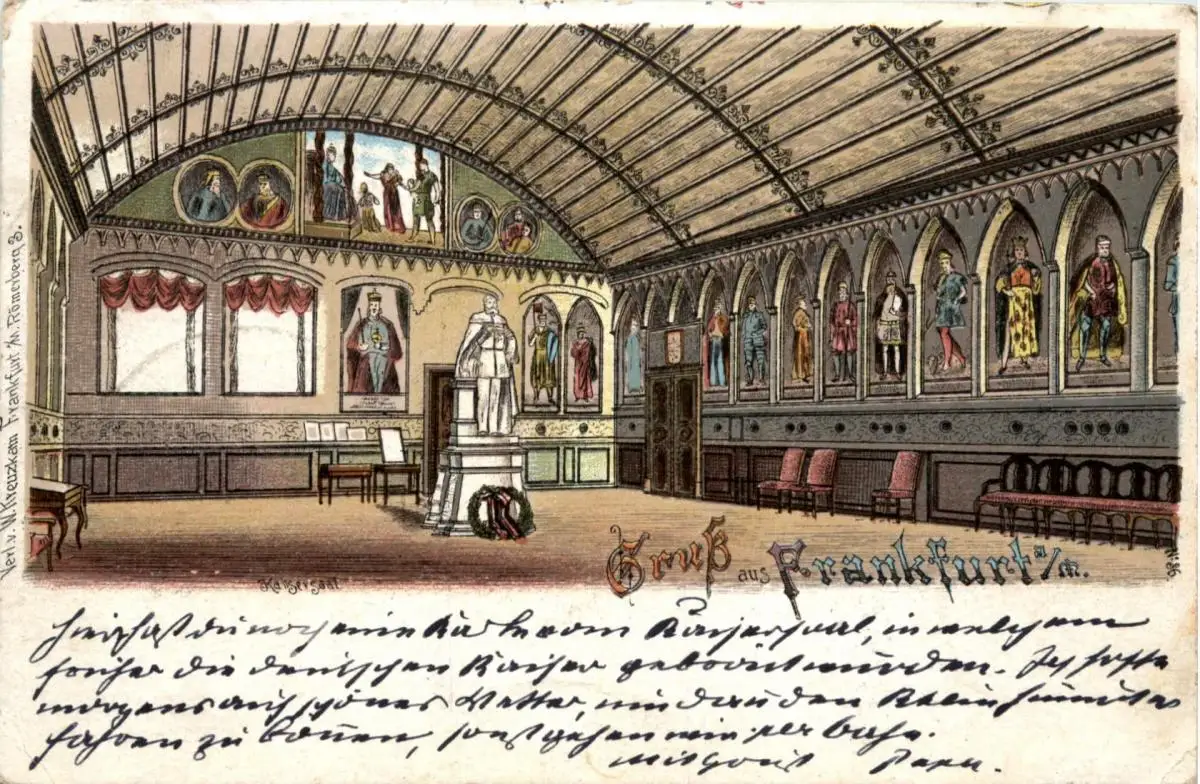 Verl. v. W. Kreuzkam Frankfurt a/M. Römerberg 3.
Kaisersaal
Gruß aus Frankfurt a/M.
No. 86
Hier hast du noch eine Karte vom Kaisersaal, in welchem
früher die deutschen Kaiser gekrönt wurden. Ich hoffe
morgens auf schönes Wetter, um dan den Rhein hinunter
fahren zu können, sonst gehen wir per Bahn.
Mit Gruß Papa.